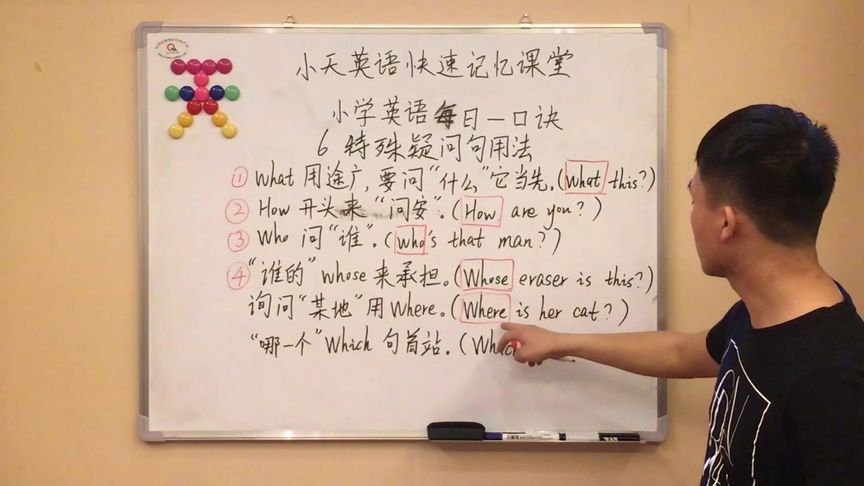 小天英语快速记忆课堂
小学英语每日一口诀
6 特殊疑问句用法
① What 用途广，要问“什么”它当先。(What this?)
② How 开头来“问安”。(How are you?)
③ Who 问“谁”。(Who's that man?)
④ “谁的” whose 来承担。(Whose eraser is this?)
询问“某地”用 Where。(Where is her cat?)
“哪一个” Which 句首站。(Which